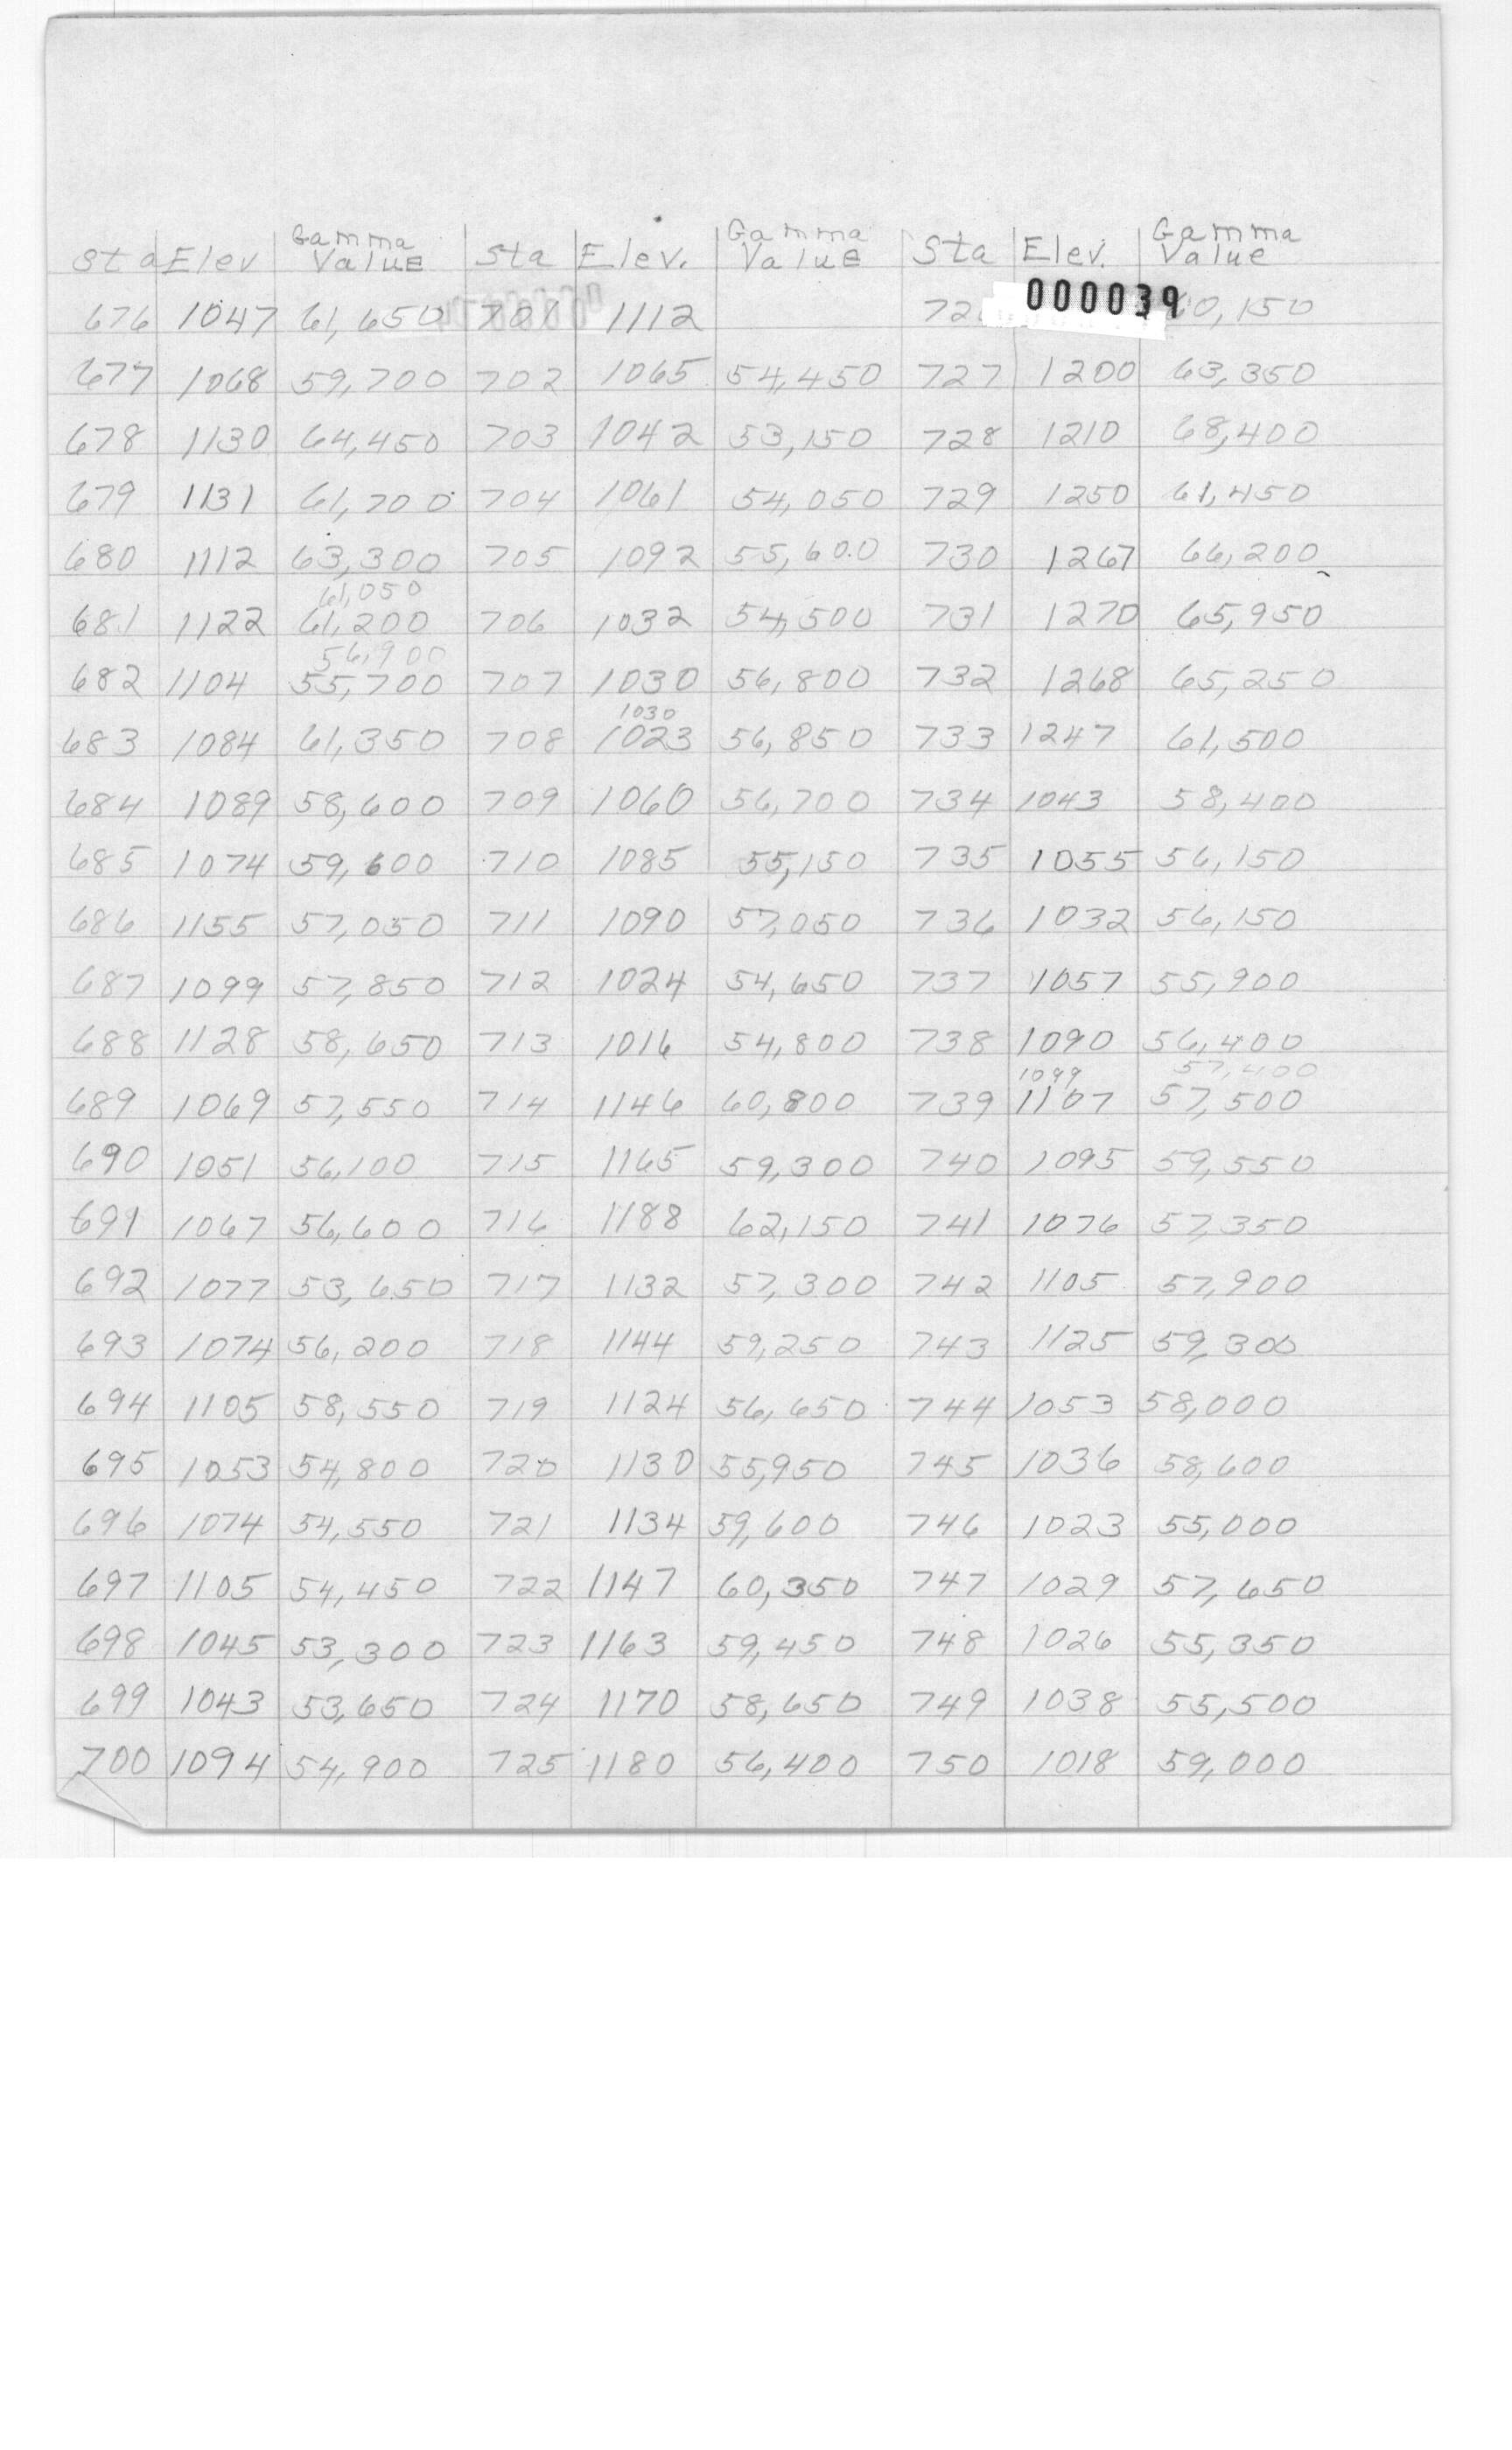 Sta Elev Gamma Value Sta Elev. Gamma Value Sta Elev. Gamma Value
000039
676 1047 61,650 701 1112
677 1068 59,700 702 1065 54,450 727 1200 63,350
678 1130 64,450 703 1042 53,150 728 1210 68,400
679 1131 61,700 704 1061 54,050 729 1250 61,450
680 1112 63,300 705 1092 55,600 730 1267 66,200
61,050
681 1122 61,200 706 1032 54,500 731 1270 65,950
56,900
682 1104 55,700 707 1030 56,800 732 1268 65,250
1030
683 1084 61,350 708 1023 56,850 733 1247 61,500
684 1089 58,600 709 1060 56,700 734 1043 58,400
685 1074 59,600 710 1085 55,150 735 1055 56,150
686 1155 57,050 711 1090 57,050 736 1032 56,150
687 1099 57,850 712 1024 54,650 737 1057 55,900
688 1128 58,650 713 1016 54,800 738 1090 56,400
1099 57,400
689 1069 57,550 714 1146 60,800 739 1107 57,500
690 1051 56,100 715 1165 59,300 740 1095 59,550
691 1067 56,600 716 1188 62,150 741 1076 57,350
692 1077 53,650 717 1132 57,300 742 1105 57,900
693 1074 56,200 718 1144 59,250 743 1125 59,300
694 1105 58,550 719 1124 56,650 744 1053 58,000
695 1053 54,800 720 1130 55,950 745 1036 58,600
696 1074 54,550 721 1134 59,600 746 1023 55,000
697 1105 54,450 722 1147 60,350 747 1029 57,650
698 1045 53,300 723 1163 59,450 748 1026 55,350
699 1043 53,650 724 1170 58,650 749 1038 55,500
700 1094 54,900 725 1180 56,400 750 1018 59,000